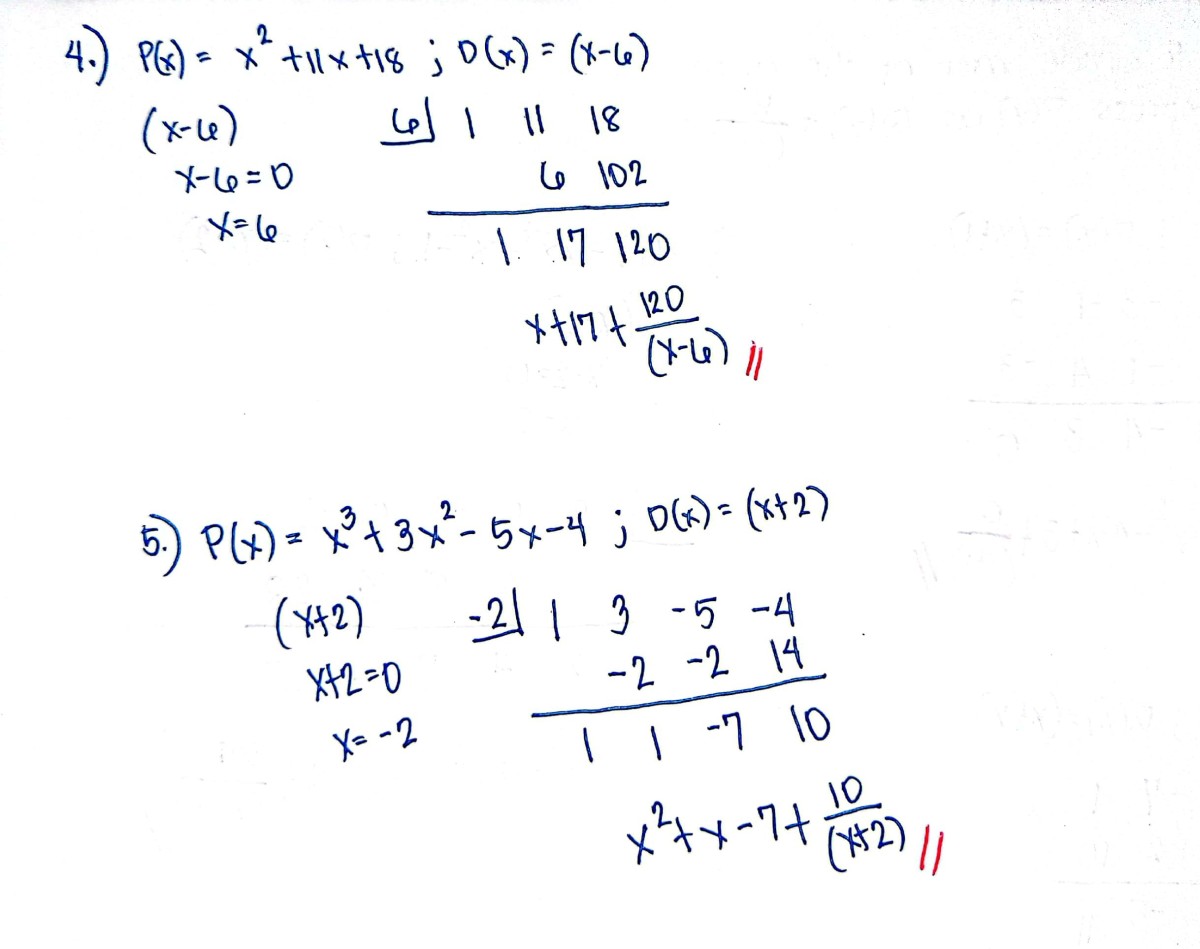 4.) P(x) = x² +11x+18 ; D(x) = (x-6)
(x-6) 6| 1 11 18
x-6=0 6 102
x=6
1 17 120
x+17+ 120/(x-6) //
5.) P(x) = x³+3x²-5x-4 ; D(x) = (x+2)
(x+2) -2| 1 3 -5 -4
x+2=0 -2 -2 14
x=-2 1 1 -7 10
x²+x-7+ 10/(x+2) //